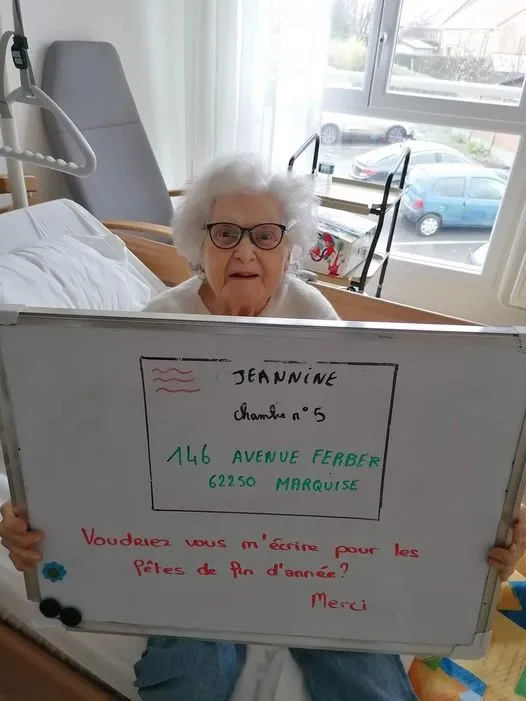 JEANNINE
Chambre n° 5
146 AVENUE FERBER
62250 MARQUISE
Voudriez vous m'écrire pour les
fêtes de fin d'année?
Merci